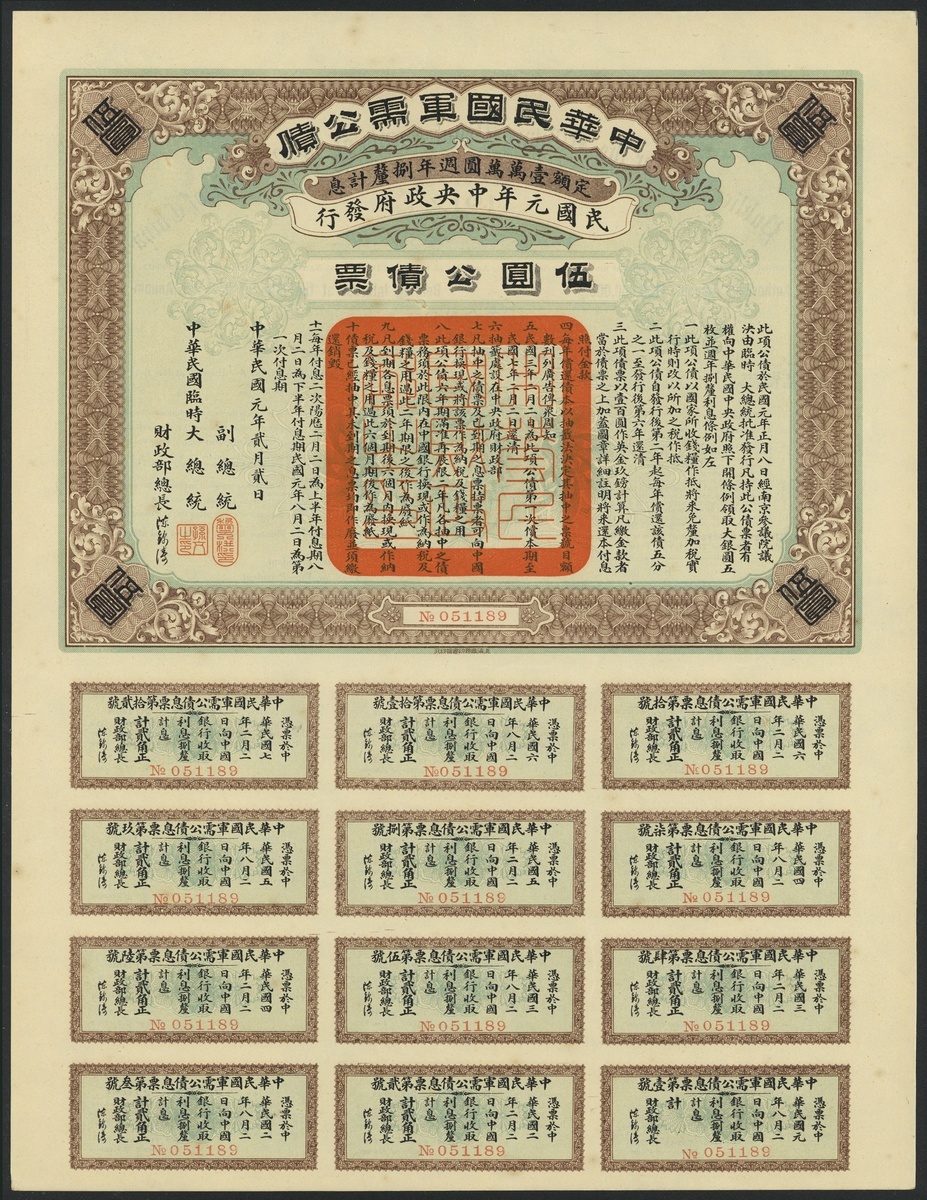 中華民國軍需公債
定額壹萬萬圓週年捌釐計息
民國元年中央政府發行
伍圓
伍圓
伍圓公債票
此項公債於民國元年正月八日經南京參議院議
決由臨時 大總統批准發行凡持此公債票者有
權向中華民國中央政府照下開條例領取大銀圓五
枚並週年捌釐利息條例如左
一 此項公債以國家所收錢糧作抵將來免釐加稅實
行時則改以所加之稅作抵
二 此項公債自發行後第二年起每年償還該債五分
之一至發行後第六年還清
三 此項債票以壹百圓作英金玖磅計算凡繳金款者
當於債票之上加蓋圖章詳細註明將來還本付息
照付金款
四 每年償還債本以抽籤法決定其抽中之票號目額
數刊列廣告俾衆周知
五 民國二年二月二日為此項公債第一次償本期至
民國七年二月二日還清
六 抽籤處設在中央政府財政部
七 凡抽中之債票及已到期之息票持票者可向中國
銀行換現或將該票作為納稅及錢糧之用
八 此項公債六年期滿准再展限二年凡各抽中之債
票務須於此限內在中國銀行換現或作為納稅及
錢糧之用過此二年期限之後作為廢紙
九 凡到期各息票須於到期後六個月內換現或作納
稅及錢糧之用過此六個月期後作為廢紙
十 債票已經抽中其未到期之息票均即作廢並須繳
還銷毀
十一 每年付息二次陽曆二月二日為上半年付息期八
月二日為下半年付息期民國元年八月二日為第
一次付息期
中華民國元年貳月貳日
中華民國臨時大總統
副總統
財政部總長 陳錦濤
伍圓
伍圓
№ 051189
中華民國軍需公債息票第拾號
憑票於中
華民國六
年二月二
日向中國
銀行收取
利息捌釐
計息
計貳角正
財政部總長
陳錦濤
№ 051189
中華民國軍需公債息票第拾壹號
憑票於中
華民國六
年八月二
日向中國
銀行收取
利息捌釐
計息
計貳角正
財政部總長
陳錦濤
№ 051189
中華民國軍需公債息票第拾貳號
憑票於中
華民國七
年二月二
日向中國
銀行收取
利息捌釐
計息
計貳角正
財政部總長
陳錦濤
№ 051189
中華民國軍需公債息票第柒號
憑票於中
華民國四
年八月二
日向中國
銀行收取
利息捌釐
計息
計貳角正
財政部總長
陳錦濤
№ 051189
中華民國軍需公債息票第捌號
憑票於中
華民國五
年二月二
日向中國
銀行收取
利息捌釐
計息
計貳角正
財政部總長
陳錦濤
№ 051189
中華民國軍需公債息票第玖號
憑票於中
華民國五
年八月二
日向中國
銀行收取
利息捌釐
計息
計貳角正
財政部總長
陳錦濤
№ 051189
中華民國軍需公債息票第肆號
憑票於中
華民國三
年二月二
日向中國
銀行收取
利息捌釐
計息
計貳角正
財政部總長
陳錦濤
№ 051189
中華民國軍需公債息票第伍號
憑票於中
華民國三
年八月二
日向中國
銀行收取
利息捌釐
計息
計貳角正
財政部總長
陳錦濤
№ 051189
中華民國軍需公債息票第陸號
憑票於中
華民國四
年二月二
日向中國
銀行收取
利息捌釐
計息
計貳角正
財政部總長
陳錦濤
№ 051189
中華民國軍需公債息票第壹號
憑票於中
華民國元
年八月二
日向中國
銀行收取
利息捌釐
計息
計
財政部總長
陳錦濤
№ 051189
中華民國軍需公債息票第貳號
憑票於中
華民國二
年二月二
日向中國
銀行收取
利息捌釐
計息
計貳角正
財政部總長
陳錦濤
№ 051189
中華民國軍需公債息票第叁號
憑票於中
華民國二
年八月二
日向中國
銀行收取
利息捌釐
計息
計貳角正
財政部總長
陳錦濤
№ 051189